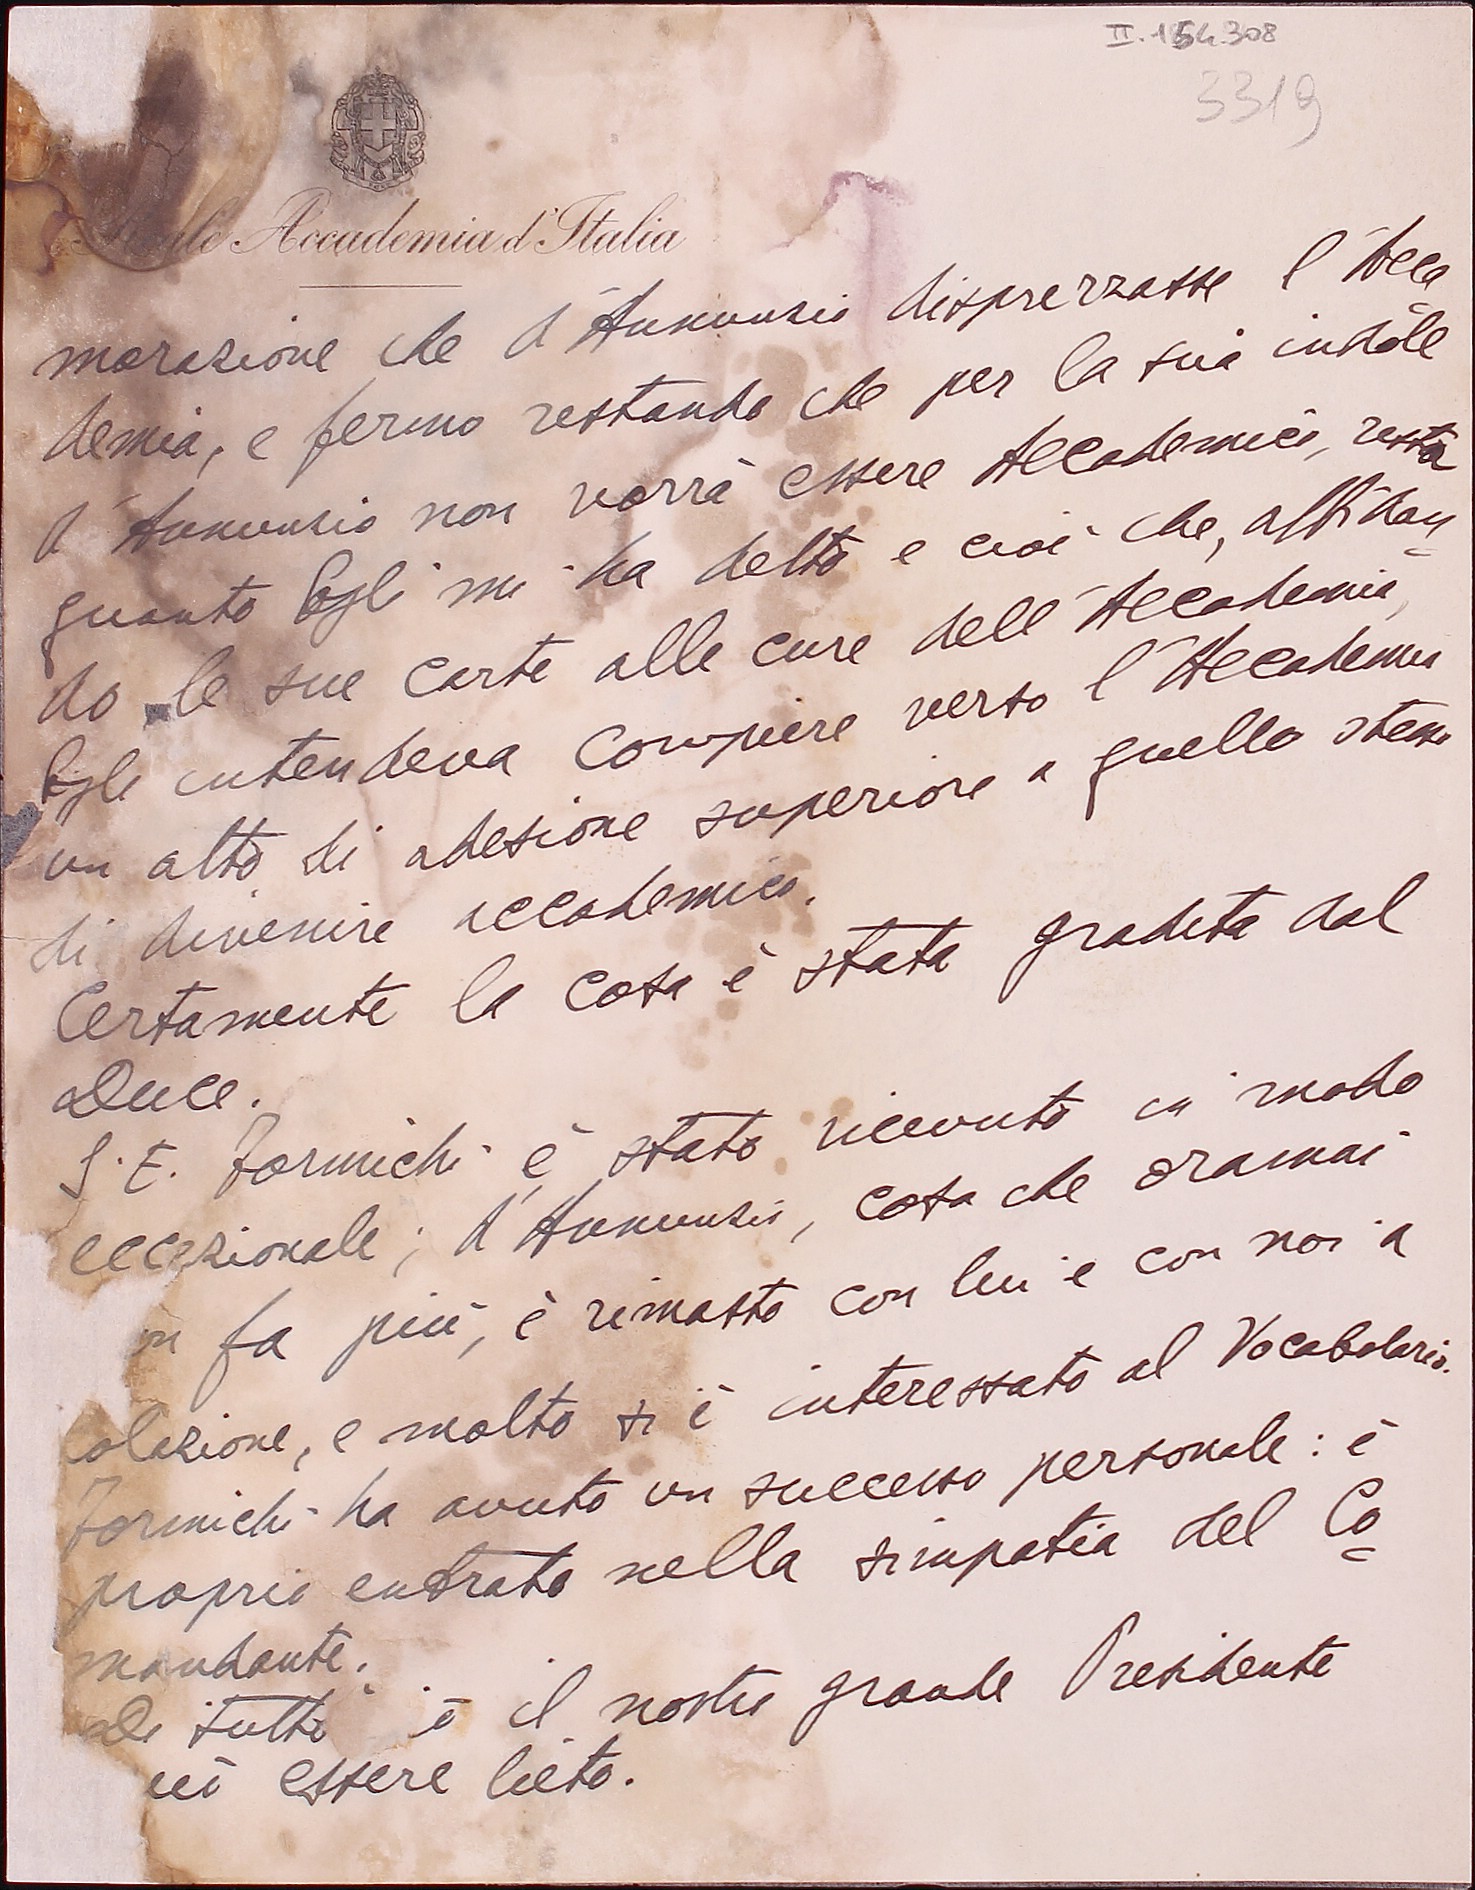 II.154.308
3319
Reale Accademia d'Italia
morazione che d'Annunzio disprezzasse l'Acca
demia, e fermo restando che per la sua indole
d'Annunzio non vorrà essere Accademico, resta
quanto Egli mi ha detto e cioè che, affidan
do le sue carte alle cure dell'Accademia,
Egli intendeva compiere verso l'Accademia
un atto di adesione superiore a quello stesso
di divenire accademico.
Certamente la cosa è stata gradita dal
Duce.
S. E. Formichi è stato ricevuto in modo
eccezionale; d'Annunzio, cosa che oramai
on fa più, è rimasto con lui e con noi a
colazione, e molto si è interessato al Vocabolario.
Formichi ha avuto un successo personale: è
proprio entrato nella simpatia del Co
mandante.
Di tutto il nostro grande Presidente
uò essere lieto.